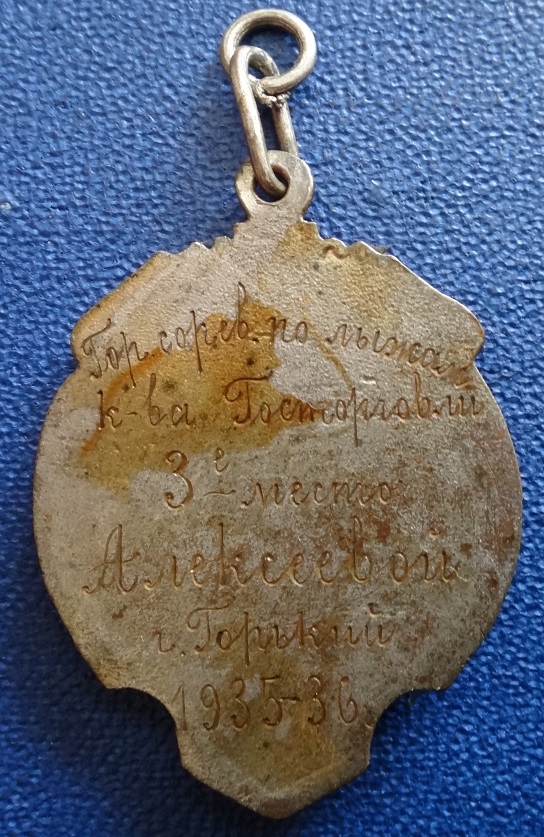 Гор. сорев. по лыжам
к-ва Госторговли
3е-место
Алексеевой
г. Горький
1935-36